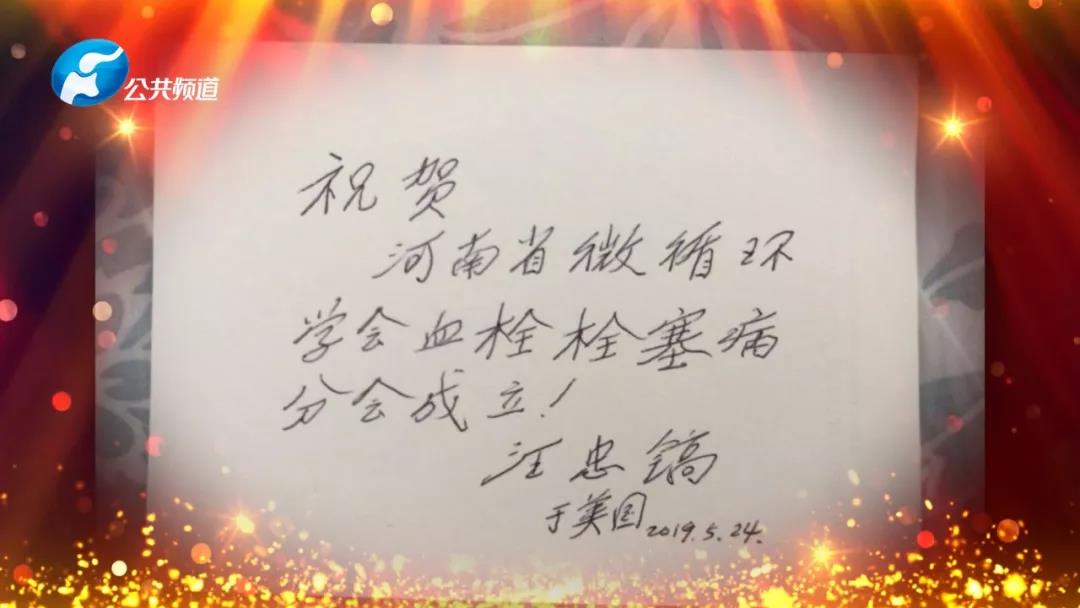 公共频道
祝贺
河南省微循环
学会血栓栓塞病
分会成立!
汪忠镐
于美国 2019.5.24.